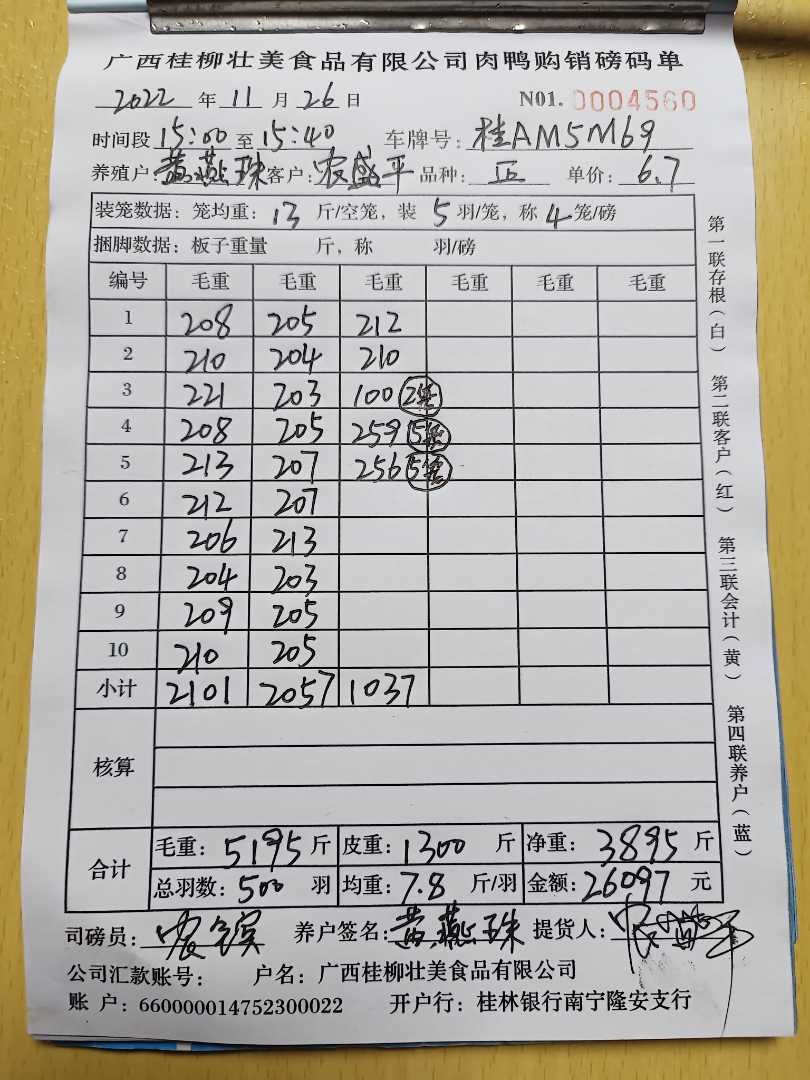 广西桂柳壮美食品有限公司肉鸭购销磅码单
2022 年 11 月 26 日 N01. 0004560
时间段 15:00 至 15:40 车牌号: 桂AM5M69
养殖户: 黄燕珠 客户: 农盛平 品种: 正 单价: 6.7
装笼数据: 笼均重: 13 斤/空笼, 装 5 羽/笼, 称 4 笼/磅
捆脚数据: 板子重量 斤, 称 羽/磅
编号 毛重 毛重 毛重 毛重 毛重 毛重
1 208 205 212
2 210 204 210
3 221 203 100 2笼
4 208 205 259 5笼
5 213 207 256 5笼
6 212 207
7 206 213
8 204 203
9 209 205
10 210 205
小计 2101 2057 1037
核算
合计
毛重: 5195 斤 皮重: 1300 斤 净重: 3895 斤
总羽数: 500 羽 均重: 7.8 斤/羽 金额: 26097 元
司磅员: 农 养户签名: 黄燕珠 提货人: 农盛平
公司汇款账号: 户名: 广西桂柳壮美食品有限公司
账 户: 660000014752300022 开户行: 桂林银行南宁隆安支行
第一联存根(白)
第二联客户(红)
第三联会计(黄)
第四联养户(蓝)